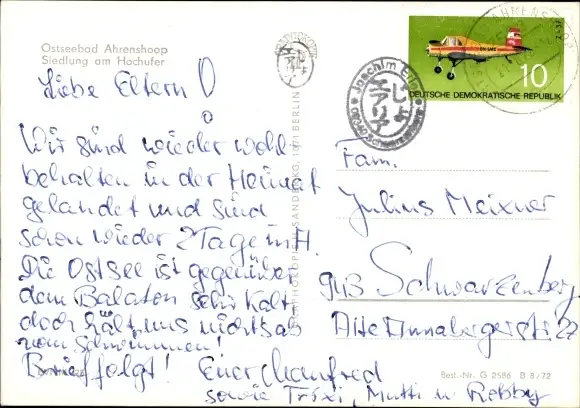 Ostseebad Ahrenshoop
Siedlung am Hochufer
Liebe Eltern!
Wir sind wieder wohl-
behalten in der Heimat
gelandet und sind
schon wieder 2 Tage in H.
Die Ostsee ist gegenüber
dem Balaton sehr kalt,
doch hält uns nichts ab
vom Schwimmen!
Brief folgt! Euer Manfred
sowie Trixi, Mutti u. Robby
1071 BERLIN
Joachim
AHRENSHOOP
10
DEUTSCHE DEMOKRATISCHE REPUBLIK
Fam.
Julius Meixner
943 Schwarzenberg
Alte Annabergerstr. 22
Best.-Nr. G 2586 B 8/72